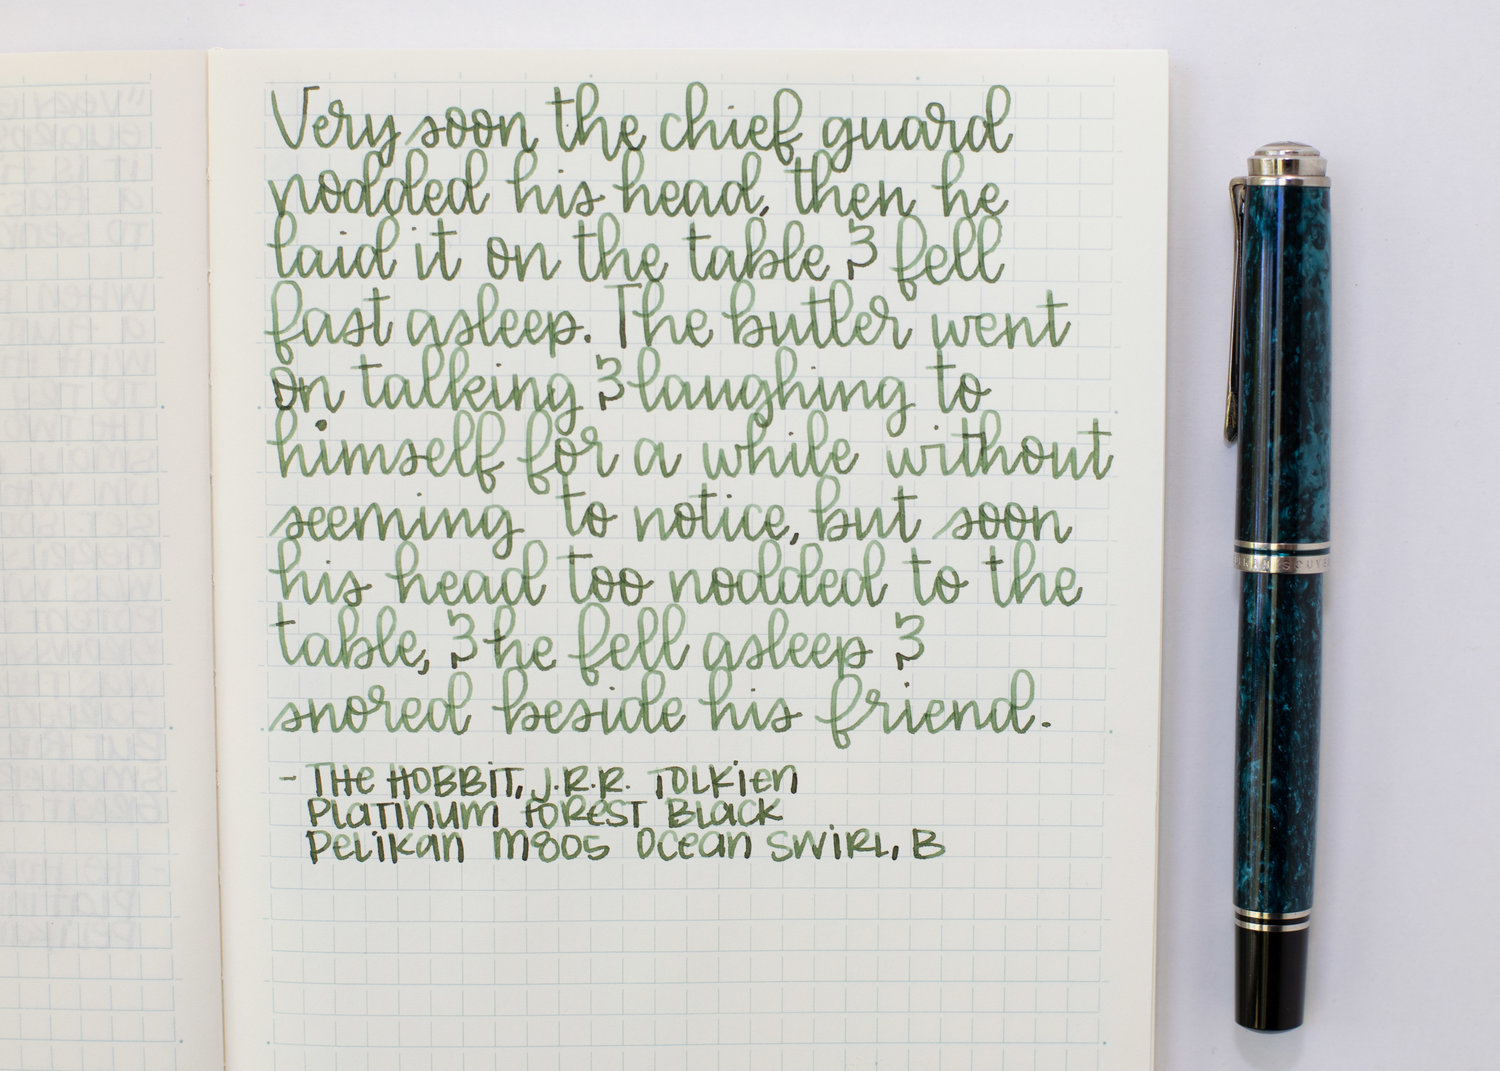 Very soon the chief guard
nodded his head, then he
laid it on the table & fell
fast asleep. The butler went
on talking & laughing to
himself for a while without
seeming to notice, but soon
his head too nodded to the
table, & he fell asleep &
snored beside his friend.
- THE HOBBIT, J.R.R. TOLKIEN
PLATINUM FOREST BLACK
PELIKAN M805 OCEAN SWIRL, B